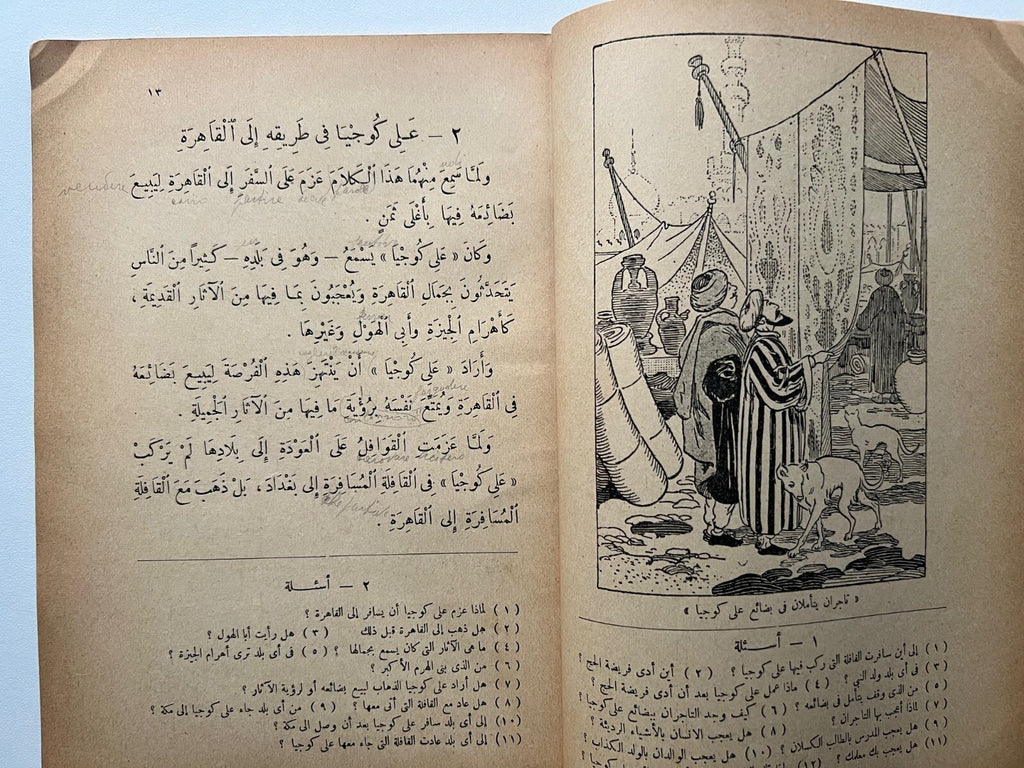 « تاجران يتأملان فى بضائع على كوجيا »
١ — أسئلة
(١) إلى أين سافرت القافلة التى ركب فيها على كوجيا ؟ (٢) أين أدى فريضة الحج ؟
(٣) فى أى بلد ولد النبى ؟ (٤) ماذا عمل على كوجيا بعد أن أدى فريضة الحج ؟
(٥) من الذى وقف يتأمل فى بضائعه ؟ (٦) كيف وجد التاجران بضائع على كوجيا ؟
(٧) لماذا أعجب بها التاجران ؟ (٨) هل يعجب الانسان بالأشياء الرديئة ؟
(٩) هل يعجب المدرس بالطالب الكسلان ؟ (١٠) هل يعجب الوالدان بالولد الكذاب ؟
(١١) هل يعجب بك معلمك ؟ (١٢)
١٣
٢ — عَلِى كُوجْيَا فِى طَرِيقِهِ إِلَى ٱلْقَاهِرَةِ
وَلَمَّا سَمِعَ مِنْهُمَا هَذَا ٱلْكَلَامَ عَزَمَ عَلَى ٱلسَّفَرِ إِلَى ٱلْقَاهِرَةِ لِيَبِيعَ
vendere
partire
بَضَائِعَهُ فِيهَا بِأَغْلَى ثَمَنٍ .
وَكَانَ « عَلِى كُوجْيَا » يَسْمَعُ — وَهُوَ فِى بَلَدِهِ — كَثِيرًا مِنَ ٱلنَّاسِ
يَتَحَدَّثُونَ بِجَمَالِ ٱلْقَاهِرَةِ وَيُعْجَبُونَ بِمَا فِيهَا مِنَ ٱلْآثَارِ ٱلْقَدِيمَةِ ،
كَأَهْرَامِ ٱلْجِيزَةِ وَأَبِى ٱلْهَوْلِ وَغَيْرِهَا .
وَأَرَادَ « عَلِى كُوجْيَا » أَنْ يَنْتَهِزَ هَذِهِ ٱلْفُرْصَةَ لِيَبِيعَ بَضَائِعَهُ
فِى ٱلْقَاهِرَةِ وَيُمَتِّعَ نَفْسَهُ بِرُؤْيَةِ مَا فِيهَا مِنَ ٱلْآثَارِ ٱلْجَمِيلَةِ .
وَلَمَّا عَزَمَتِ ٱلْقَوَافِلُ عَلَى ٱلْعَوْدَةِ إِلَى بِلَادِهَا لَمْ يَرْكَبْ
« عَلِى كُوجْيَا » فِى ٱلْقَافِلَةِ ٱلْمُسَافِرَةِ إِلَى بَغْدَادَ ، بَلْ ذَهَبَ مَعَ ٱلْقَافِلَةِ
ٱلْمُسَافِرَةِ إِلَى ٱلْقَاهِرَةِ .
٢ — أسئلة
(١) لماذا عزم على كوجيا أن يسافر إلى القاهرة ؟
(٢) هل ذهب إلى القاهرة قبل ذلك (٣) هل رأيت أبا الهول ؟
(٤) ما هى الآثار التى كان يسمع بجمالها ؟ (٥) فى أى بلد ترى أهرام الجيزة ؟
(٦) من الذى بنى الهرم الأكبر ؟
(٧) هل أراد على كوجيا الذهاب لبيع بضائعه أو لرؤية الآثار ؟
(٨) هل عاد مع القافلة التى أتى معها ؟ (٩) من أى بلد جاء على كوجيا إلى مكة ؟
(١٠) إلى أى بلد سافر على كوجيا بعد أن وصل الى مكة ؟
(١١) إلى أى بلد عادت القافلة التى جاء معها على كوجيا ؟